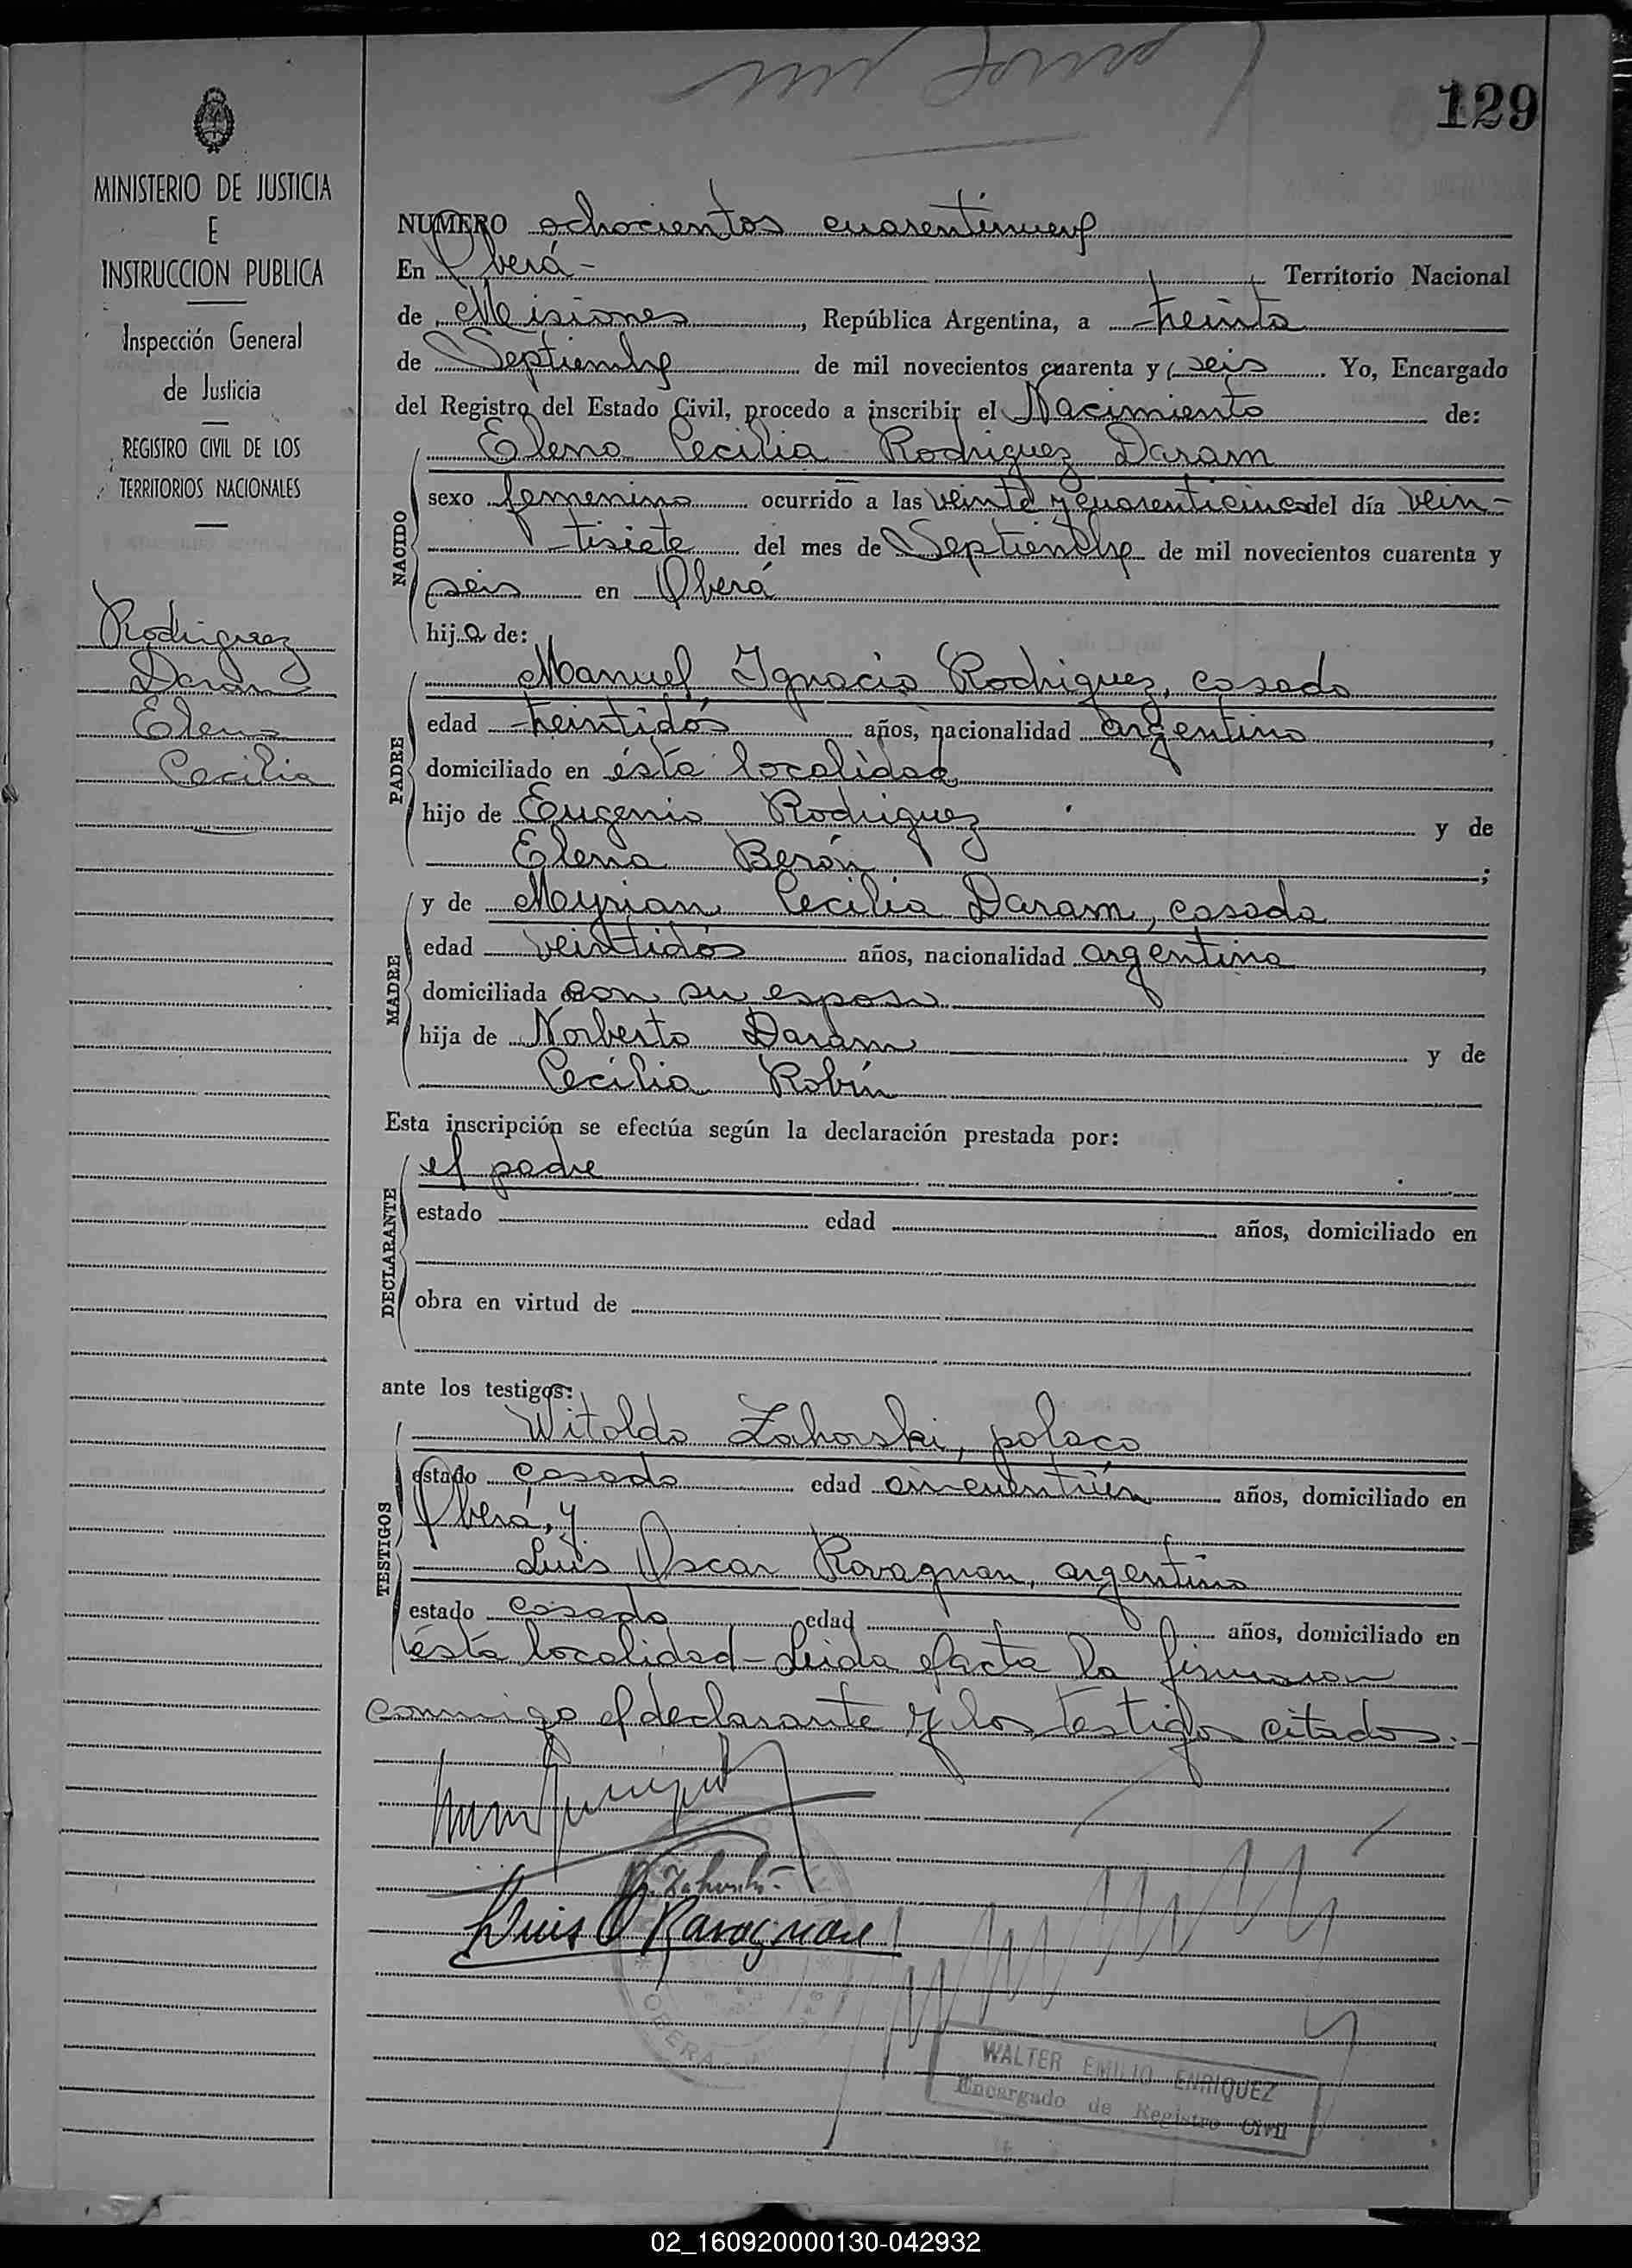 129
MINISTERIO DE JUSTICIA
E
INSTRUCCION PUBLICA
Inspección General
de Justicia
REGISTRO CIVIL DE LOS
TERRITORIOS NACIONALES
Rodriguez
Daram
Elena
Cecilia
NUMERO ochocientos cuarentinueve
En Oberá - Territorio Nacional
de Misiones, República Argentina, a treinta
de Septiembre de mil novecientos cuarenta y seis. Yo, Encargado
del Registro del Estado Civil, procedo a inscribir el Nacimiento de:
NACIDO
Elena Cecilia Rodriguez Daram
sexo femenino ocurrido a las veinte y cuarenticinco del día vein-
tisiete del mes de Septiembre de mil novecientos cuarenta y
seis en Oberá
hija de:
PADRE
Manuel Ignacio Rodriguez, casado
edad treintidós años, nacionalidad argentino,
domiciliado en ésta localidad
hijo de Eugenio Rodriguez y de
Elena Berón;
MADRE
y de Myrian Cecilia Daram, casada
edad veintidós años, nacionalidad argentina,
domiciliada con su esposo
hija de Norberto Daram y de
Cecilia Robín
Esta inscripción se efectúa según la declaración prestada por:
DECLARANTE
el padre
estado edad años, domiciliado en
obra en virtud de
ante los testigos:
TESTIGOS
Witoldo Zahorski, polaco
estado casado edad cincuentiún años, domiciliado en
Oberá, y
Luis Oscar Ravagnan, argentino
estado casado edad años, domiciliado en
ésta localidad - Leida el acta la firmaron
conmigo el declarante y los testigos citados.-
Zahorski
Luis O Ravagnan
OBERA
WALTER EMILIO ENRIQUEZ
Encargado de Registro Civil
02_160920000130-042932